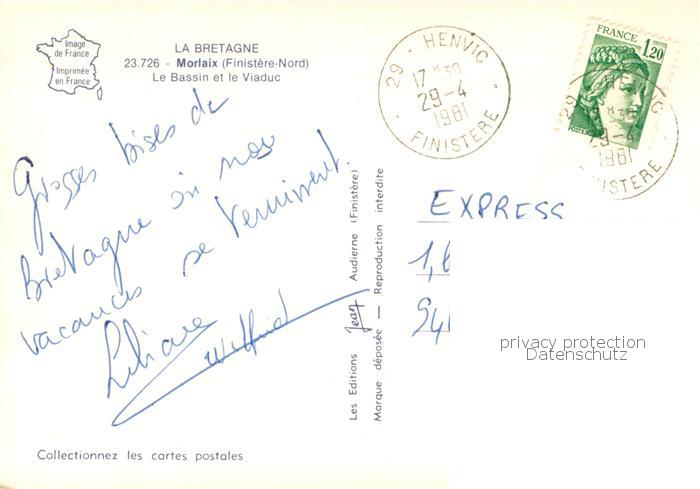 Image
de France
Imprimée
en France
LA BRETAGNE
23.726 - Morlaix (Finistère-Nord)
Le Bassin et le Viaduc
29 - HENVIC
17 H 30
29-4
1981
FINISTERE
FRANCE
1,20
POSTES
29 - HENVIC
29-4
1981
FINISTERE
Grosses bises de
Bretagne où nos
vacances se terminent.
Liliane
Wilfrid
Les Editions Jean Audierne (Finistère)
Marque déposée — Reproduction interdite
EXPRESS
1,
94
privacy protection
Datenschutz
Collectionnez les cartes postales